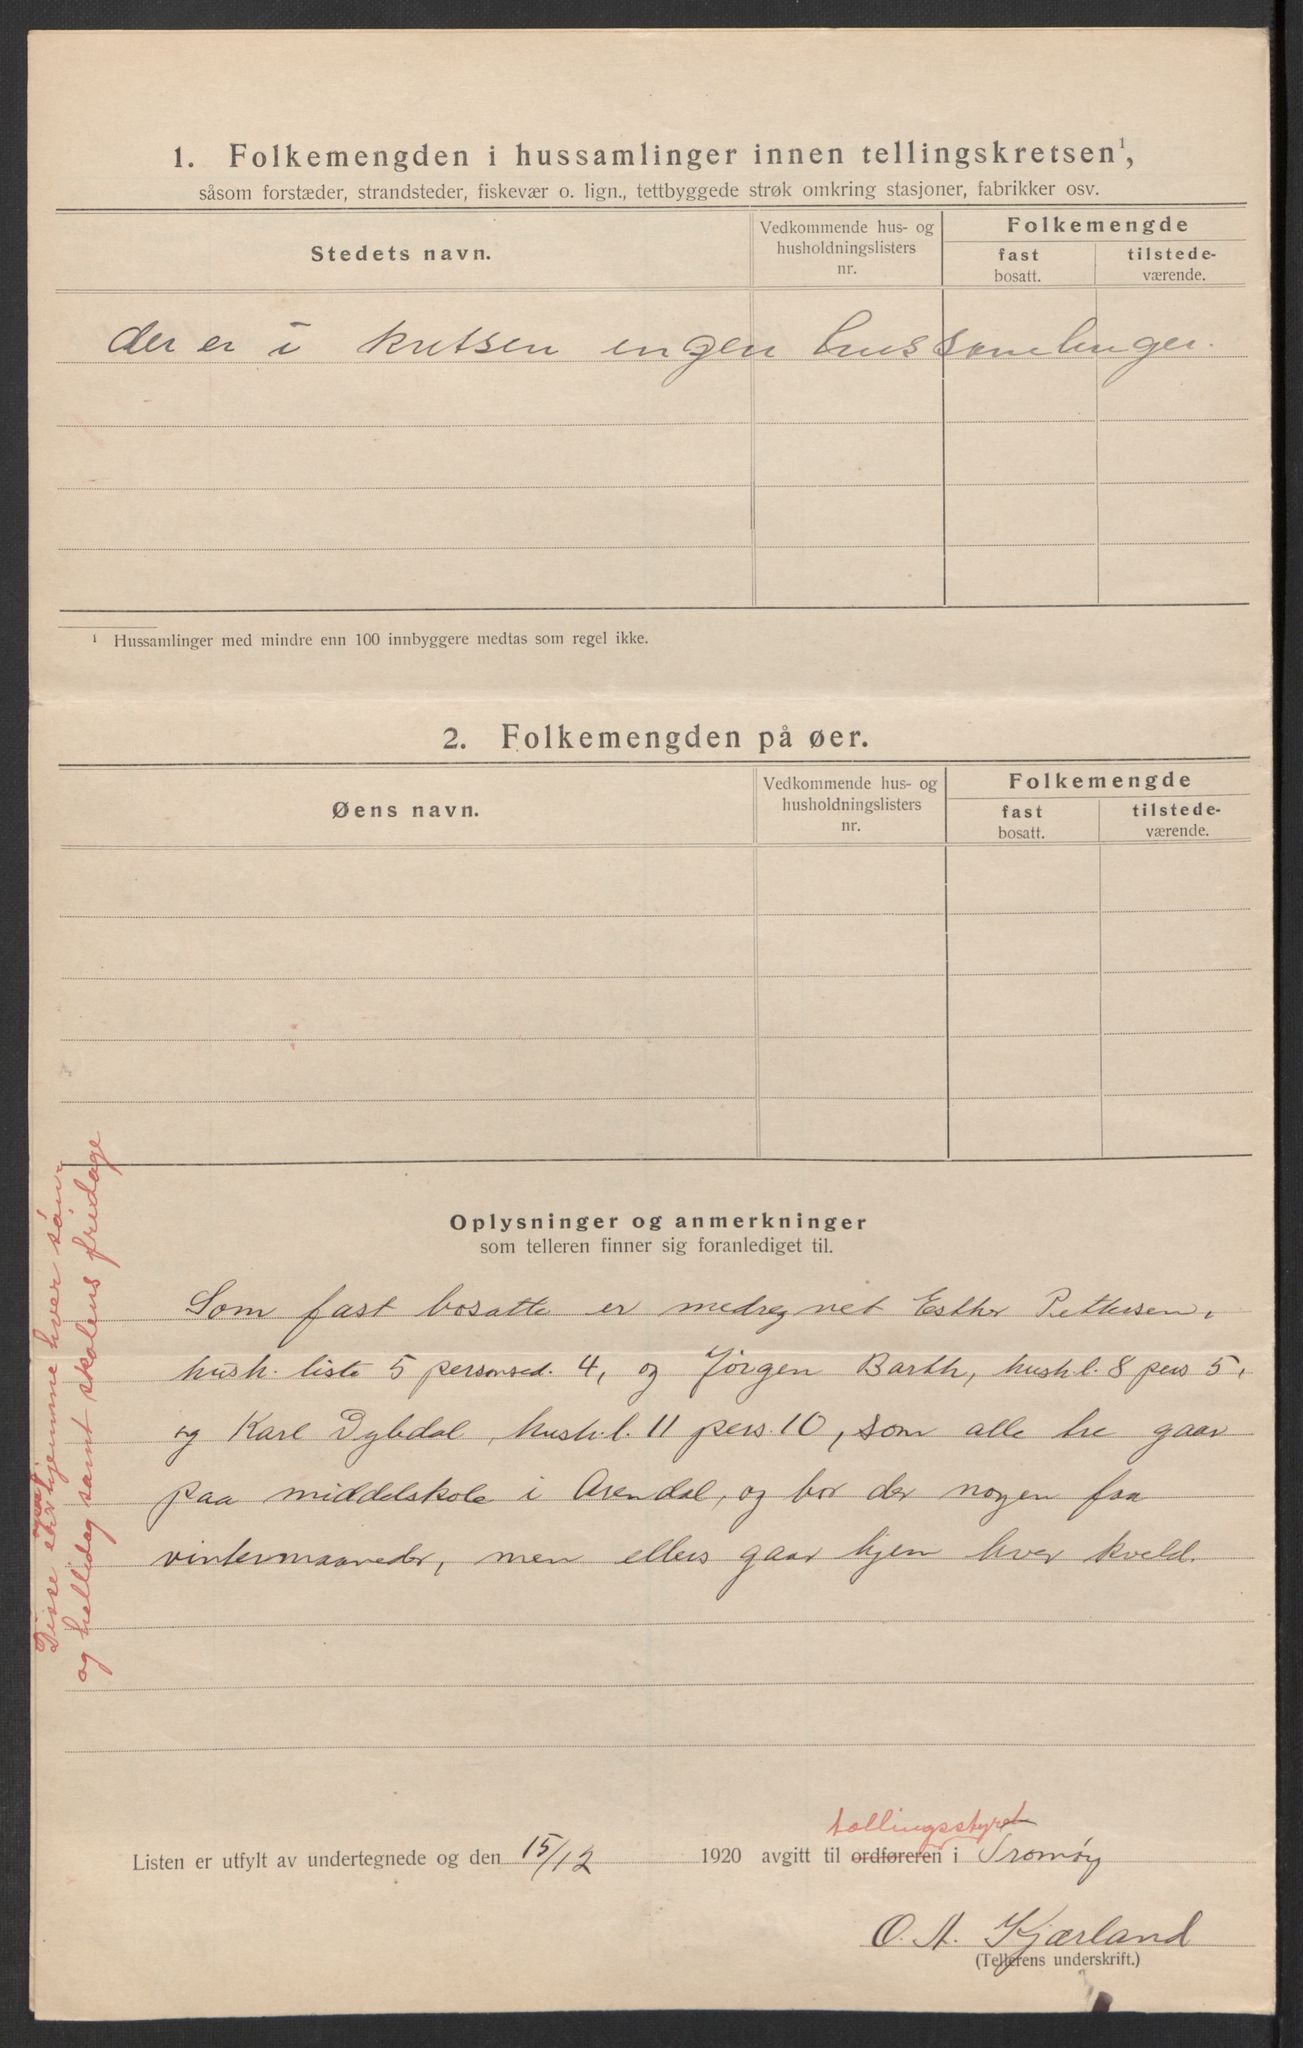 1. Folkemengden i hussamlinger innen tellingskretsen¹,
såsom forstæder, strandsteder, fiskevær o. lign., tettbyggede strøk omkring stasjoner, fabrikker osv.
Stedets navn.
Vedkommende hus- og
husholdningslisters
nr.
Folkemengde
fast
bosatt.
tilstede-
værende.
der er i kretsen ingen hussamlinger.
¹ Hussamlinger med mindre enn 100 innbyggere medtas som regel ikke.
2. Folkemengden på øer.
Øens navn.
Vedkommende hus- og
husholdningslisters
nr.
Folkemengde
fast
bosatt.
tilstede-
værende.
Oplysninger og anmerkninger
som telleren finner sig foranlediget til.
Som fast bosatte er medregnet Esther Pettersen,
hush. liste 5 personsed. 4, og Jørgen Barth, hush l. 8 pers 5,
og Karl Dybdal, hush. l. 11 pers. 10, som alle tre gaar
paa middelskole i Arendal, og bor der nogen faa
vintermaaneder, men ellers gaar hjem hver kveld.
Disse er hjemme hver søn-
og helligdag samt skolens fridage
tællingsstyret
Listen er utfylt av undertegnede og den 15/12 1920 avgitt til ordføreren i Tromøy
O. A. Kjærland
(Tellerens underskrift.)